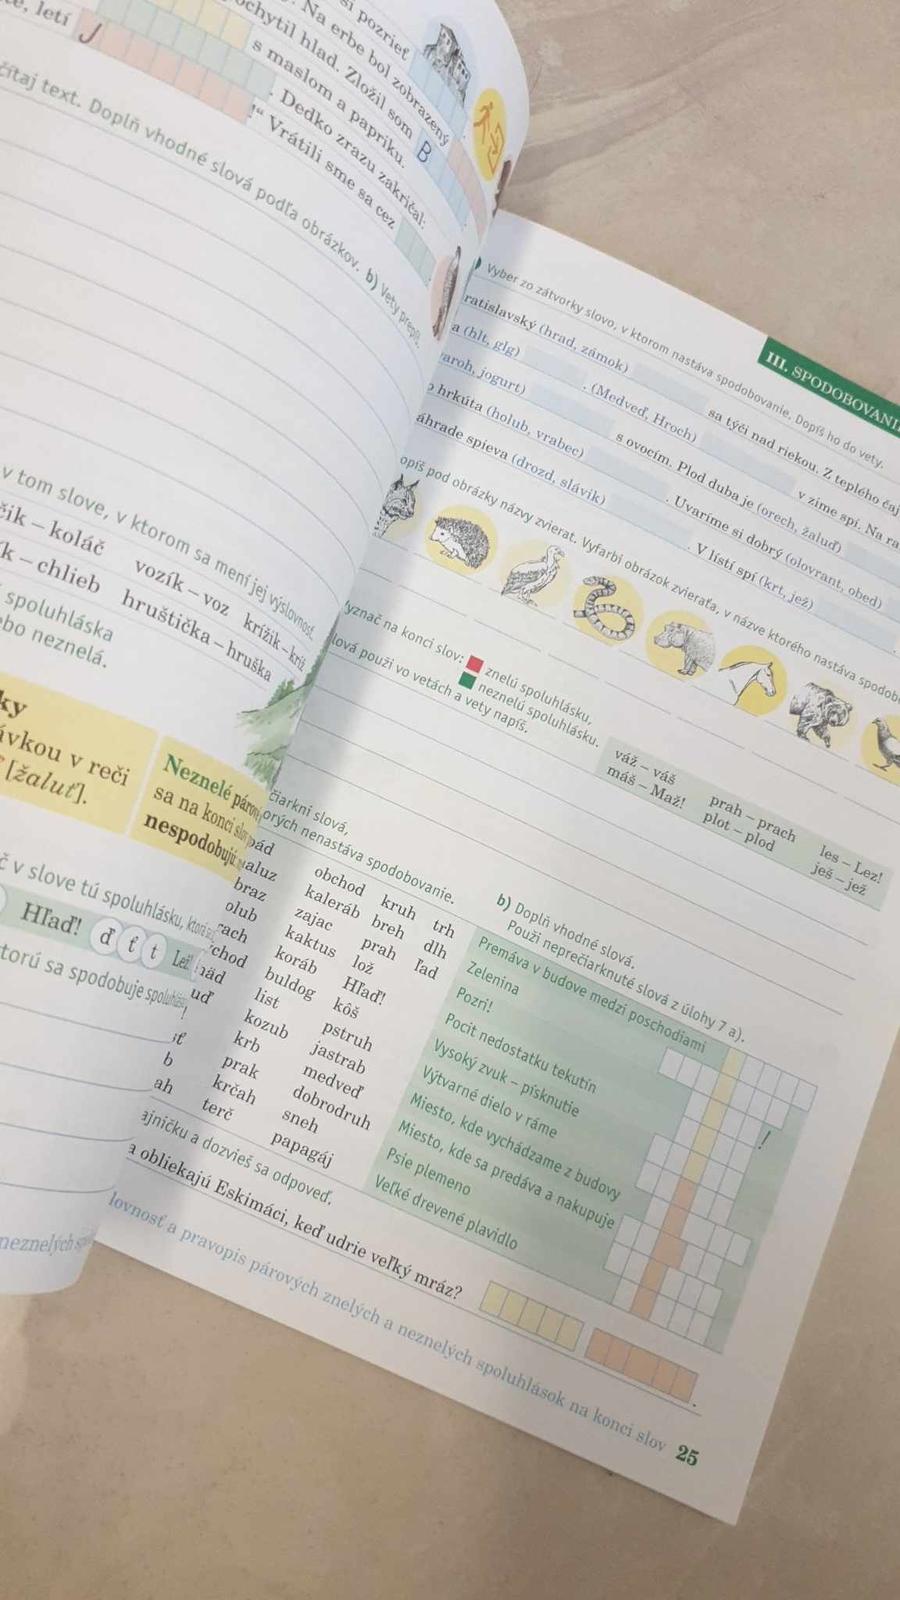 si pozrieť
Na erbe bol zobrazený
ochytil hlad. Zložil som B
letí J s maslom a papriku.
. Dedko zrazu zakričal:
!“ Vrátili sme sa cez
čítaj text. Doplň vhodné slová podľa obrázkov. b) Vety prepíš.
v tom slove, v ktorom sa mení jej výslovnosť.
čik – koláč vozík – voz krížik – kríž
k – chlieb hruštička – hruška
spoluhláska
ebo neznelá.
ky
ávkou v reči
[žaluť].
Neznelé párové
sa na konci slov
nespodobujú.
č v slove tú spoluhlásku, ktorá
Hľaď! ď ť t
torú sa spodobuje
neznelých
III. SPODOBOVANI
Vyber zo zátvorky slovo, v ktorom nastáva spodobovanie. Dopíš ho do vety.
ratislavský (hrad, zámok) sa týči nad riekou. Z teplého čaj
a (hlt, glg) . (Medveď, Hroch) v zime spí. Na ra
varoh, jogurt) s ovocím. Plod duba je (orech, žaluď)
o hrkúta (holub, vrabec) . Uvaríme si dobrý (olovrant, obed)
áhrade spieva (drozd, slávik) . V lístí spí (krt, jež) .
opíš pod obrázky názvy zvierat. Vyfarbi obrázok zvieraťa, v názve ktorého nastáva spodobo
yznač na konci slov: znelú spoluhlásku,
neznelú spoluhlásku.
lová použi vo vetách a vety napíš.
váž – váš prah – prach les – Lez!
máš – Maž! plot – plod ješ – jež
čiarkni slová,
orých nenastáva spodobovanie.
pád obchod kruh trh
aluz kaleráb breh dlh
braz zajac prah ľad
olub kaktus lož
rach koráb Hľaď!
chod buldog kôš
nád list pstruh
uď kozub jastrab
! krb medveď
sť prak dobrodruh
b krčah sneh
ah terč papagáj
b) Doplň vhodné slová.
Použi neprečiarknuté slová z úlohy 7 a).
Premáva v budove medzi poschodiami
Zelenina
Pozri! !
Pocit nedostatku tekutín
Vysoký zvuk – písknutie
Výtvarné dielo v ráme
Miesto, kde vychádzame z budovy
Miesto, kde sa predáva a nakupuje
Psie plemeno
Veľké drevené plavidlo
ajničku a dozvieš sa odpoveď.
a obliekajú Eskimáci, keď udrie veľký mráz? .
lovnosť a pravopis párových znelých a neznelých spoluhlások na konci slov 25